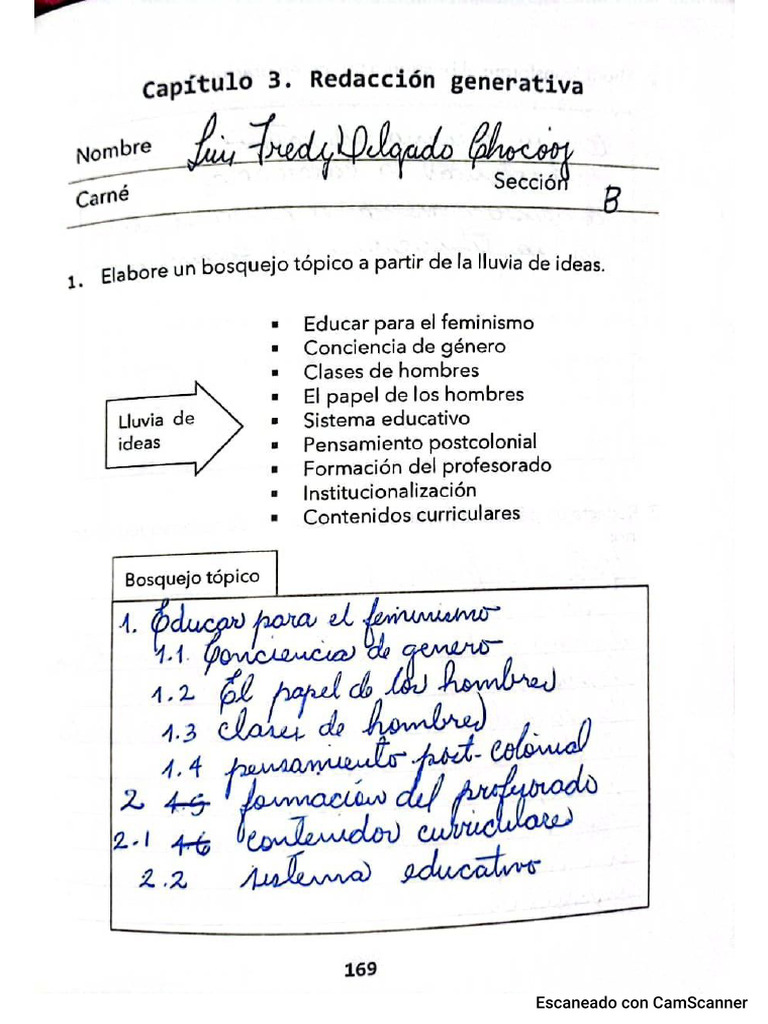 Capítulo 3. Redacción generativa
Nombre Luis Fredy Delgado Chocooj
Sección
Carné B
1. Elabore un bosquejo tópico a partir de la lluvia de ideas.
▪ Educar para el feminismo
▪ Conciencia de género
▪ Clases de hombres
▪ El papel de los hombres
▪ Sistema educativo
▪ Pensamiento postcolonial
▪ Formación del profesorado
▪ Institucionalización
▪ Contenidos curriculares
Lluvia de
ideas
Bosquejo tópico
1. Educar para el feminismo
1.1. Conciencia de genero
1.2 El papel de los hombres
1.3 clases de hombres
1.4 pensamiento post-colonial
2 1.5 formación del profesorado
2.1 1.6 contenidos curriculares
2.2 sistema educativo
169
Escaneado con CamScanner